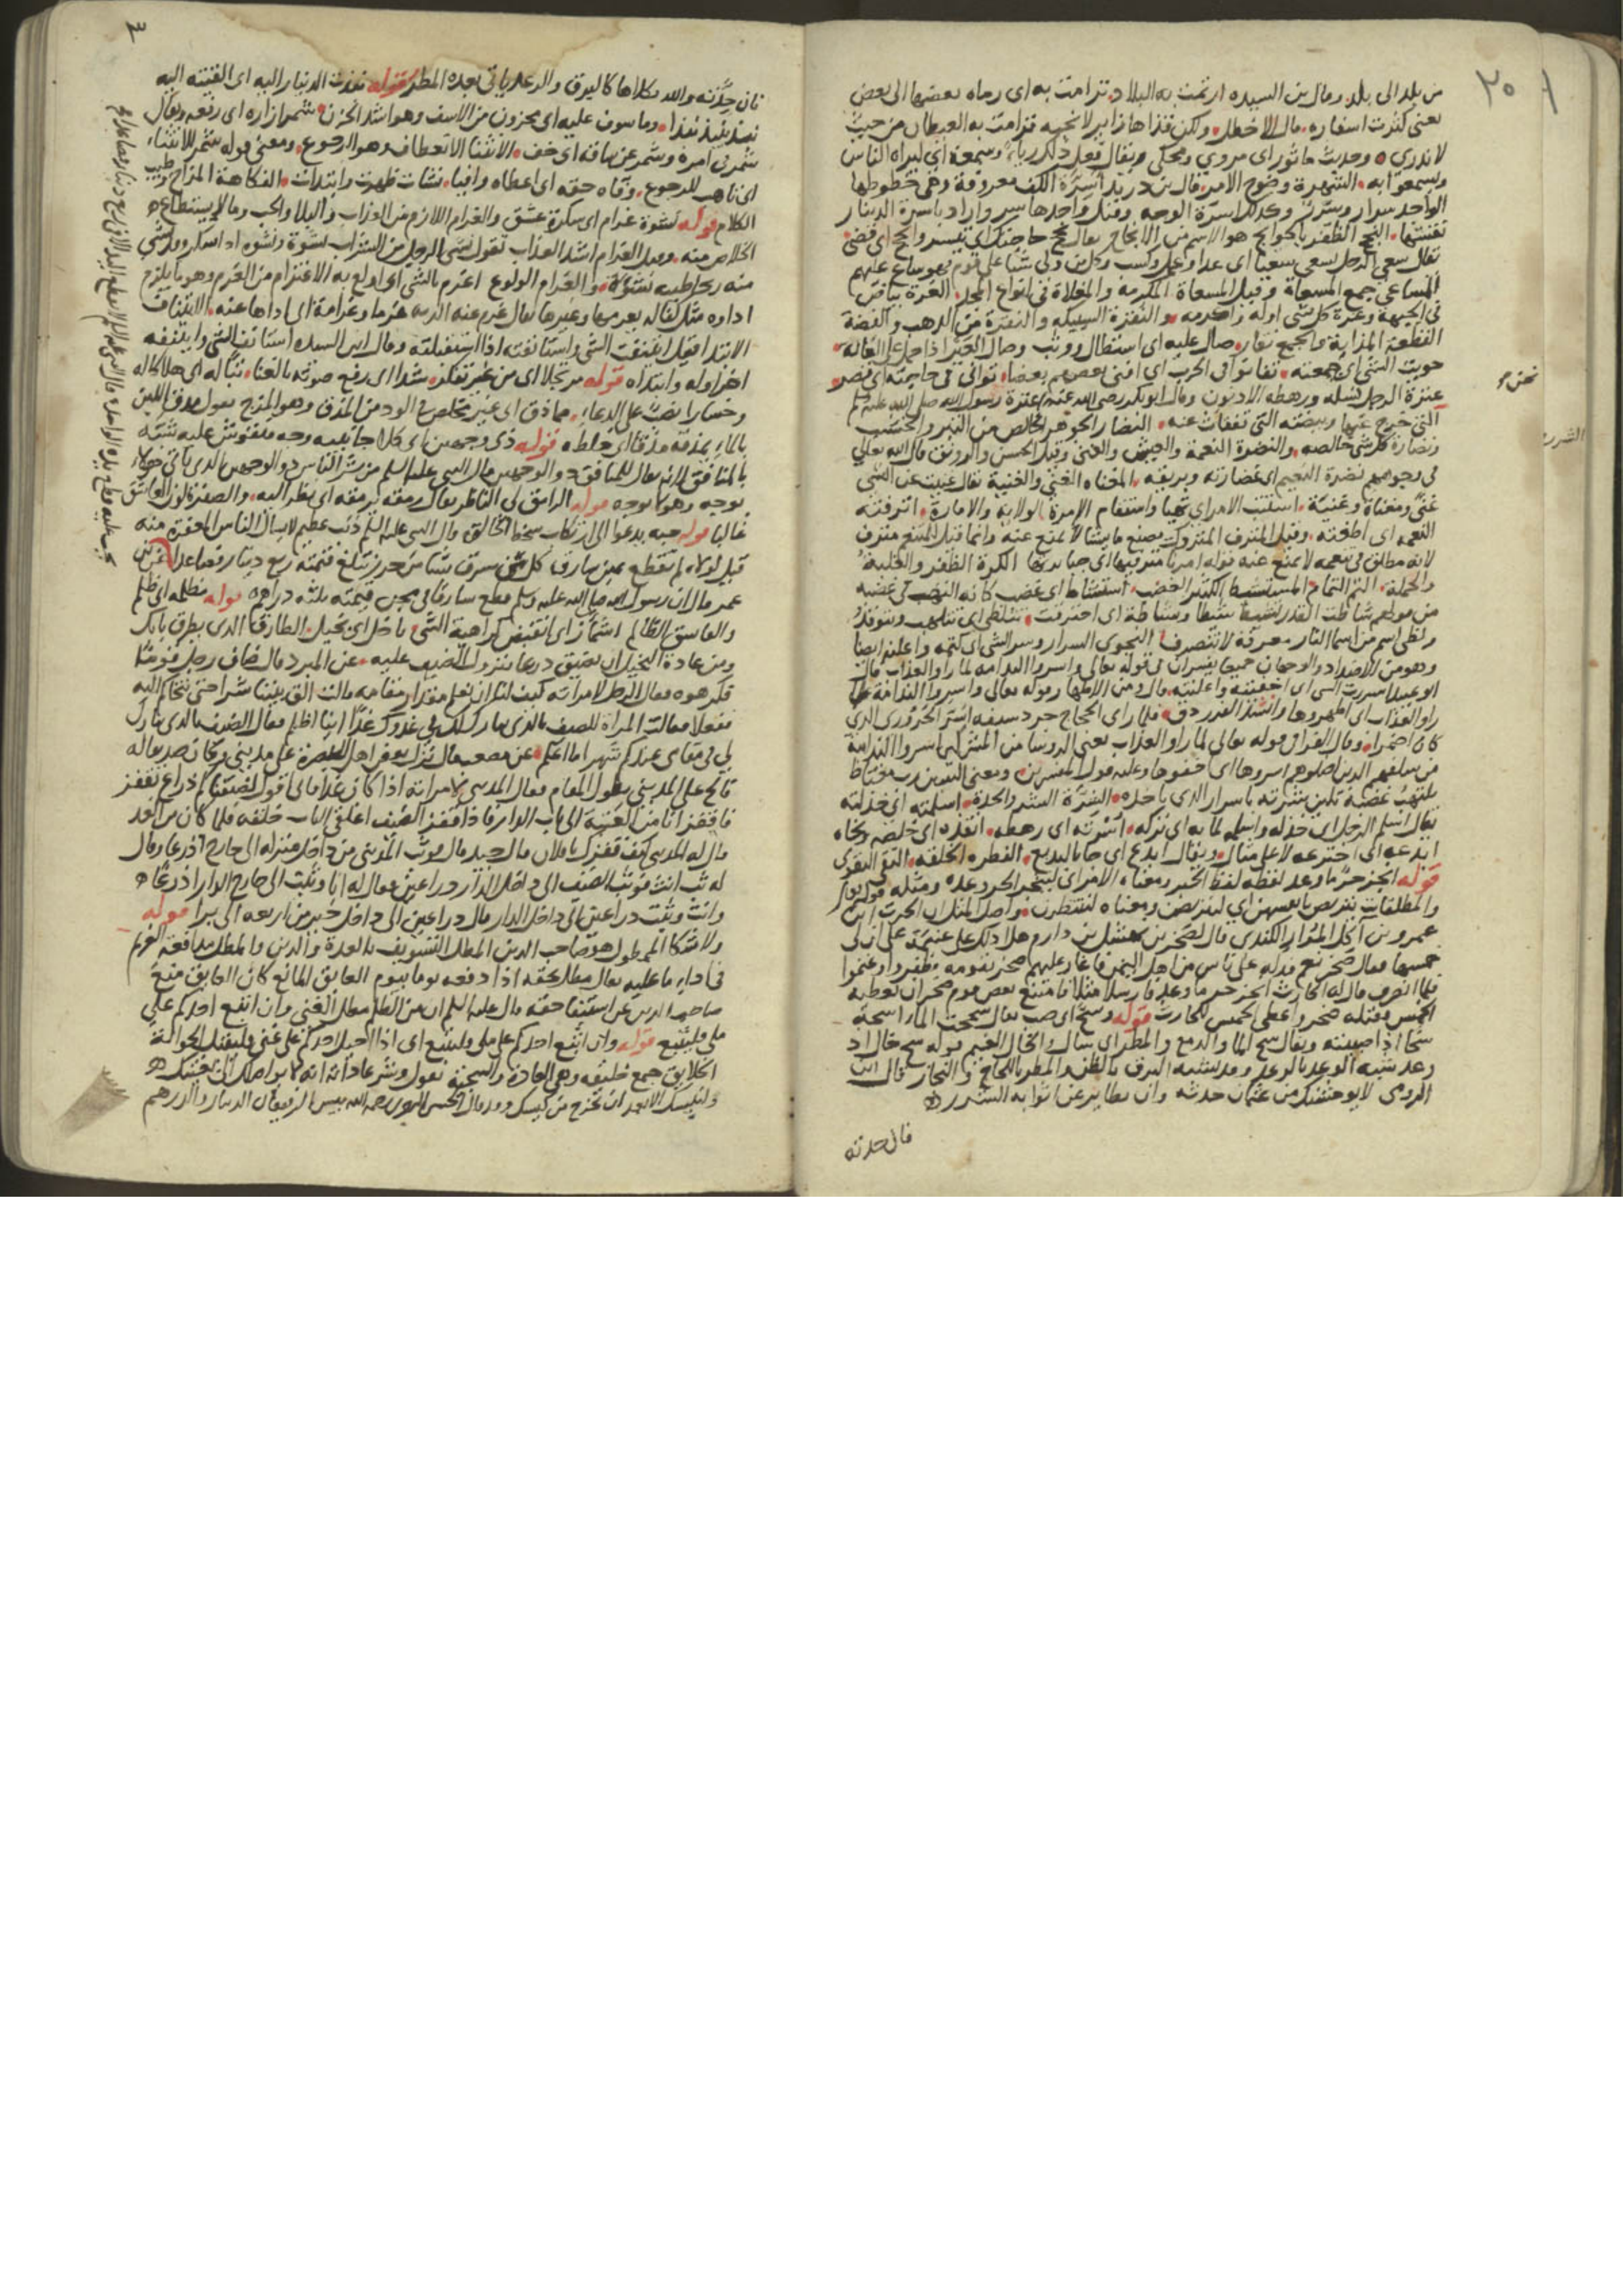 من بلد الى بلد وقال ابن السيده ارتمت به البلاد وترامت به اى رماه بعضها الى بعض
يعنى كثرت اسفاره قال الاخطل ولكن قذاها زاير لا نحبه ترامت به الغيطان من حيث
لا ندرى وحديث ماثور اى مروي ومحكى ويقال فعل ذلك رياء وسمعة اى ليراه الناس
ويسمعوا به الشهرة وضوح الامر قال ابن دريد اسرة الكف معروفة وهى خطوطها
الواحد سرار وسرر وكذلك اسرة الوجه وقيل واحدها سر واراد باسرة الدينار
نقشتها النجح الظفر بالحوايج هو الاسم من الانجاح يقال نجح حاجتك اى تيسر وانجح اى قضى
يقال سعى الرجل يسعى سعيا اى عدا وعمل وكسب وكل من ولى شيا على قوم فهو ساع عليهم
المساعى جمع المسعاة وقيل المسعاة المكرمة والمعلاة فى انواع المجد الغرة بياض
فى الجبهة وغرة كل شى اوله واكرمه والنقرة السبيكه والنقرة من الذهب والفضة
القطعة المذابة والجمع نقار صال عليه اى استطال ووثب وصال العير اذا حمل على العانة
حويت الشى اى جمعته تفانوا فى الحرب اى افنى بعضهم بعضا توانى فى حاجته اى قصر
عترة الرجل نسله ورهطه الادنون وقال ابو بكر رضى الله عنه نحن عترة رسول الله صلى الله عليه وسلم
التى خرج عنها وبيضته التى تفقات عنه النضار الجوهر الخالص من التبر والخشب
ونضارة كل شى خالصه والنضرة النعمة والعيش والغنى وقيل الحسن والرونق قال الله تعالى
فى وجوههم نضرة النعيم اى غضارته وبريقه المغناه الغنى والغنية يقال غنيت عن الشى
غنى ومغناة وغنية استتب الامر اى تهيا واستقام الامرة الولاية والامارة اترفته
النعمه اى اطغته وقيل المترف المتروك يصنع ما يشا لا يمنع عنه وانما قيل للمتنعم مترف
لانه مطلق فى نعمه لا يمنع عنه قوله امرنا مترفيها اى جبابرتها الكرة الظفر والغلبة
والحملة التم التمام المستشيط الكثير الغضب استشاط اى غضب كانه التهب فى غضبه
من قولهم شاطت القدر تشيط شيطا وشياطة اى احترقت تتلظى اى تتلهب وتتوقد
ولظى اسم من اسما النار معرفة لا تنصرف النجوى السرار وسر الشى اى كتمه واعلنه ايضا
وهو من الاضداد والوجهان جميعا يفسران فى قوله تعالى واسروا الندامه لما راوا العذاب قال
ابو عبيد اسررت الشى اى اخفيته واعلنته قال ومن الاظهار قوله تعالى واسروا الندامة لما
راوا العذاب اى اظهروها وانشد الفرزدق فلما راى الحجاج جرد سيفه اسر الحرورى الذى
كان اضمرا وقال الفرا فى قوله تعالى لما راوا العذاب يعنى الروسا من المشركين اسروا الندامة
من سفلتهم الذين اضلوهم اسروها اى اخفوها وعليه قول المفسرين
يلتهب غضبه تلين بشرته باسرار الذى ياخذه البشرة البشر والجلدة اسلمته اى خذلته
يقال اسلم الرجل اى خذله واسلمه لما به اى تركه اسرته اى رهطه انقذه اى خلصه ونجاه
ابدعه اى اخترعه لا على مثال ويقال ابدع اى جا بالبديع الفطره الخلقه التقى التقوى
قوله انجز حر ما وعد لفظه لفظ الخبر ومعناه الامر اى لينجز الحر وعده ومثله قوله تعالى
والمطلقات يتربصن بانفسهن اى ليتربصن ومعناه لينتظرن واصل المثل ان الحرث ابن
عمرو بن آكل المرار الكندى قال لصخر بن نهشل بن دارم هل ادلك على غنيمة على ان لى
خمسها فقال صخر نعم فدله على ناس من اهل اليمن فاغار عليهم صخر بقومه فظفروا وغنموا
فلما انصرف قال له الحارث انجز حر ما وعد فارسلها مثلا فامتنع بعض قوم صخر ان يعطيه
الخمس فقتله صخر واعطى الخمس للحارث قوله وسح اى صب يقال سححت الما اسحه
سحا اذا صببته ويقال سح الما والدمع والمطر اى سال والخال الغيم قوله سح خال اذ
رعد شبه الوعد بالرعد وقد يشبه البرق بالظن والمطر بالنجاح والنجاز قال ابن
الرومى لابو حفص من عثمان حدثه وان تطاير عن اثوابه الشرر
قال حدثه
نحن
الشرر
٢٠
فان حدثه والله بكلاهما كالبرق والرعد ياتى بعده المطر قوله نبذت الدينار اليه اى القيته اليه
نبذ ينبذ نبذا وماسوف عليه اى محزون من الاسف وهو اشد الحزن شمر ازاره اى رفعه ويقال
شمر فى امره وشمر عن ساقه اى خف الانثنا الانعطاف وهو الرجوع ومعنى قوله شمر للانثناء
اى تاهب للرجوع وفاه حقه اى اعطاه وافيا نشات ظهرت وابتدات الفكاهة المزاح وطيب
الكلام قوله نشوة غرام اى سكرة عشق والغرام اللازم من العذاب والبلا والحب وما لا يستطاع
الخلاص منه وقيل الغرام اشد العذاب تقول نشى الرجل من الشراب نشوة ونشوه اذا سكر
والغرام الولوع اغرم بالشى اى اولع به الاغترام من الغرم وهو ما يلزم
اداوه مثل كفاله يغرمها وغيرها يقال غرم عنه الدية غرما وغرامة اى اداها عنه الايتناف
الابتدا فيقل ايتنفت الشى واستانفته اذا استقبلته وقال ابن السيده استانف الشى وايتنفه
اخذ اوله وابتداه قوله مرتجلا اى من غير تفكر شدا اى رفع صوته بالغنا تبا له اى هلاكا له
وخسارا نصب على الدعاء مماذق اى غير مخلص فى الود من المذق وهو المزج يقول مذق اللبن
بالماء يمذقه مذقا اى خلطه قوله ذى وجهين اى كلا جانبيه وجه منقوش عليه شبه
بالمنافق الذى يقال للمنافق ذو الوجهين قال النبى عليه السلم من شر الناس ذو الوجهين الذى ياتى هولاء
بوجه وهولا بوجه قوله الرامق اى الناظر يقال رمقه يرمقه اى نظر اليه والصفرة لون العاشق
غالبا قوله حبه يدعوا الى ارتكاب سخط الخالق قال النبى عليه السلم ذنب عظيم لا يسال الناس المغفرة منه
قوله لولاه لم تقطع يمين سارق كل من سرق شيا من حرز تبلغ قيمته ربع دينار فصاعدا عن ابن
عمر قال ان رسول الله صلى الله عليه وسلم قطع سارقا فى مجن قيمته ثلثه دراهم قوله مظلمه اى ظلم
والفاسق الظالم اشماز اى انقبض كراهية الشى باخل اى بخيل الطارق الذى يطرق بابك
ومن عادة البخيل ان يضيق ذرعا بنزول الضيف عليه عن المبرد قال ضاف رجل قوما
فكرهوه فقال الرجل لامراته كيف لنا ان نعلم مقدار مقامه قالت الق بيننا شرا حتى نتحاكم اليه
ففعلا فقالت المراة للضيف بالذى يبارك لك فى غدوك غدا اينا اظلم فقال الضيف والذى يبارك
لى فى مقامى عندكم شهرا ما اعلم عن مصعب قال نزل بعض اهل البصرة على مدينى وكان صديقا له
فالح على المدينى بطول المقام فقال المدينى لامراته اذا كان غدا فانى اقول لضيفنا كم ذراع تقفز
فاقفز انا من العتبة الى باب الدار فاذا قفز الضيف اغلقى الباب خلفه فلما كان من الغد
قال له المدينى كيف قفزك يا فلان قال جيد قال فوثب المدينى من داخل منزله الى خارج اذرعا وقال
له ثب انت فوثب الضيف الى داخل الدار ذراعين فقال له انا وثبت الى خارج الدار اذرعا
وانت وثبت ذراعين الى داخل الدار قال ذراعين الى داخل خير من اربعه الى برا قوله
ولا شكا الممطول هو صاحب الدين المطل التسويف بالعدة والدين والمطل مدافعة الغريم
فى اداء ما عليه يقال مطله بحقه اذا دفعه يوما بيوم العايق المانع كان العايق منع
صاحب الدين عن استيفا حقه قال عليه السلم ان من الظلم مطل الغنى وان اتبع احدكم على
ملى فليتبع قوله وان اتبع احدكم على ملى فليتبع اى اذا احيل احدكم على غنى فليقبل الحوالة
الخلايق جمع خليقه وهى العادة والسجية يقول وشر عاداته انه لا يواصلك الى بغيتك
وليكسك الا بعد ان تخرج من كيسك وقد قال الحسن البصرى رحمه الله بيس الرفيقان الدينار والدرهم